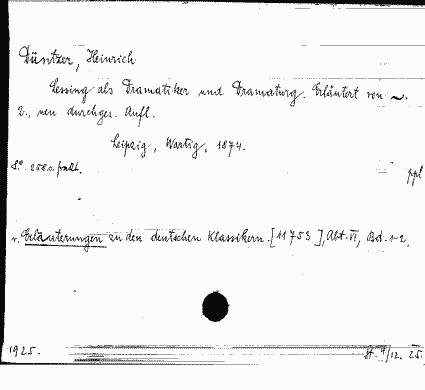 Düntzer, Heinrich
Lessing als Dramatiker und Dramaturg. Erläutert von ~.
2., neu durchges. Aufl.
Leipzig, Wartig, 1874.
8.° 258 S.
ppl
v. Erläuterungen zu den deutschen Klassikern. [11753], Abt. VI, Bd. 1-2.
1925.
9/12. 25.